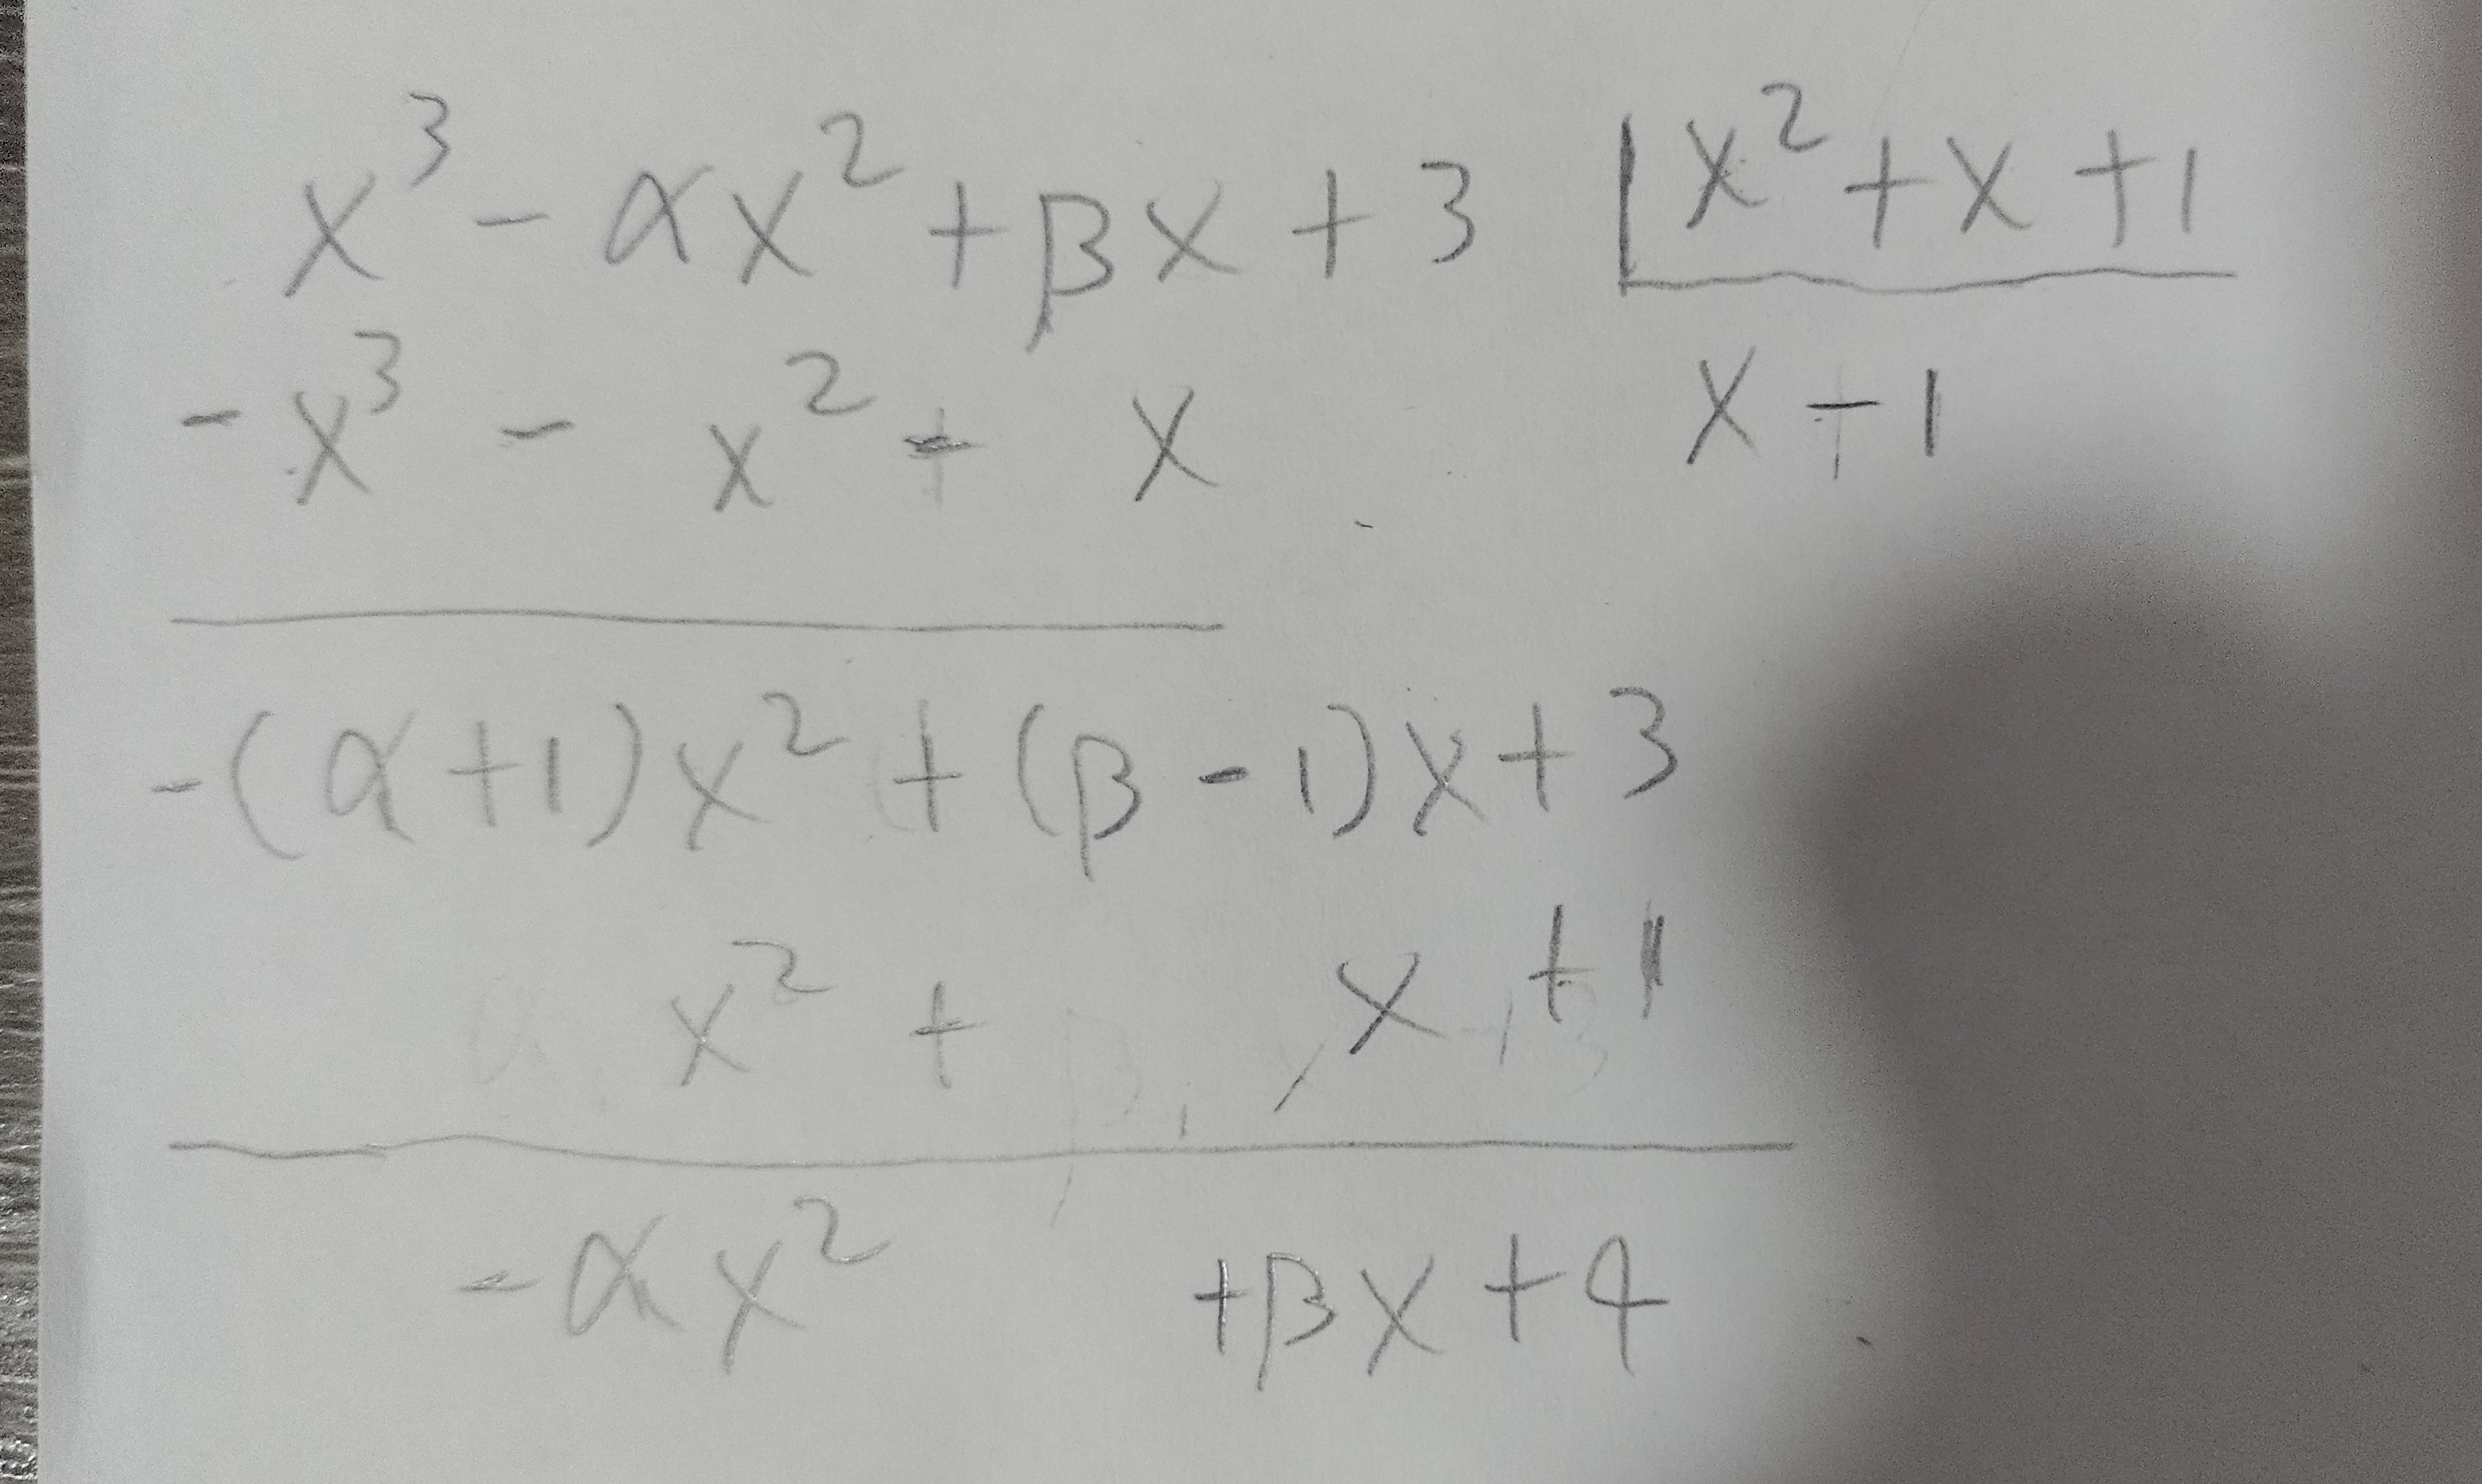 x³ - αx² + βx + 3 | x² + x + 1
-x³ - x² - x x - 1
-(α+1)x² + (β-1)x + 3
x² + x + 1
-αx² + βx + 4